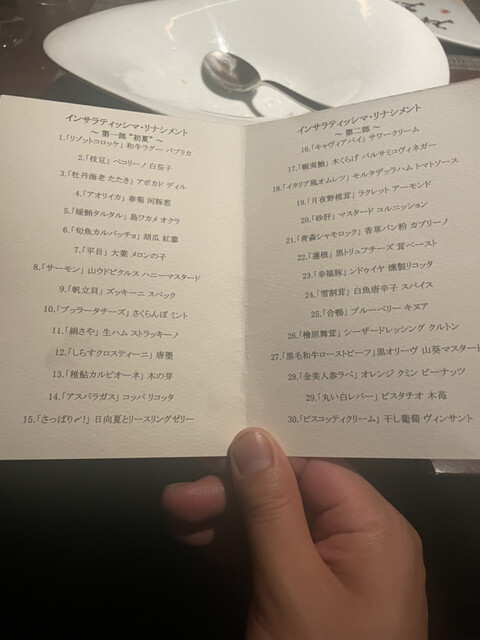 インサラティッシマ・リナシメント
～ 第一部 "初夏" ～
1.「リゾットコロッケ」 和牛ラグー パプリカ
2.「枝豆」 ペコリーノ 白茄子
3.「牡丹海老 たたき」 アボカド ディル
4.「アオリイカ」 春菊 河豚葱
5.「縞鯵タルタル」 島ワカメ オクラ
6.「旬魚カルパッチョ」 胡瓜 紅蓼
7.「平目」 大葉 メロンの子
8.「サーモン」 山ウドピクルス ハニーマスタード
9.「帆立貝」 ズッキーニ スペック
10.「ブッラータチーズ」 さくらんぼ ミント
11.「絹さや」 生ハム ストラッキーノ
12.「しらすクロスティーニ」 唐墨
13.「稚鮎カルピオーネ」 木の芽
14.「アスパラガス」 コッパ リコッタ
15.「さっぱり〆!」 日向夏とリースリングゼリー
インサラティッシマ・リナシメント
～ 第二部 ～
16.「キャヴィアパイ」 サワークリーム
17.「蝦夷鮑」 木くらげ バルサミコヴィネガー
18.「イタリア風オムレツ」 モルタデッラハム トマトソース
19.「月夜野椎茸」 ラクレット アーモンド
20.「砂肝」 マスタード コルニッション
21.「青森シャモロック」 香草パン粉 カプリーノ
22.「蓮根」 黒トリュフチーズ 茸ペースト
23.「幸福豚」 シドゥイヤ 燻製リコッタ
24.「雪割茸」 白魚唐辛子 スパイス
25.「合鴨」 ブルーベリー キヌア
26.「檜原舞茸」 シーザードレッシング クルトン
27.「黒毛和牛ローストビーフ」 黒オリーヴ 山葵マスタード
28.「金美人参ラペ」 オレンジ クミン ピーナッツ
29.「丸い白レバー」 ピスタチオ 木苺
30.「ビスコッティクリーム」 干し葡萄 ヴィンサント